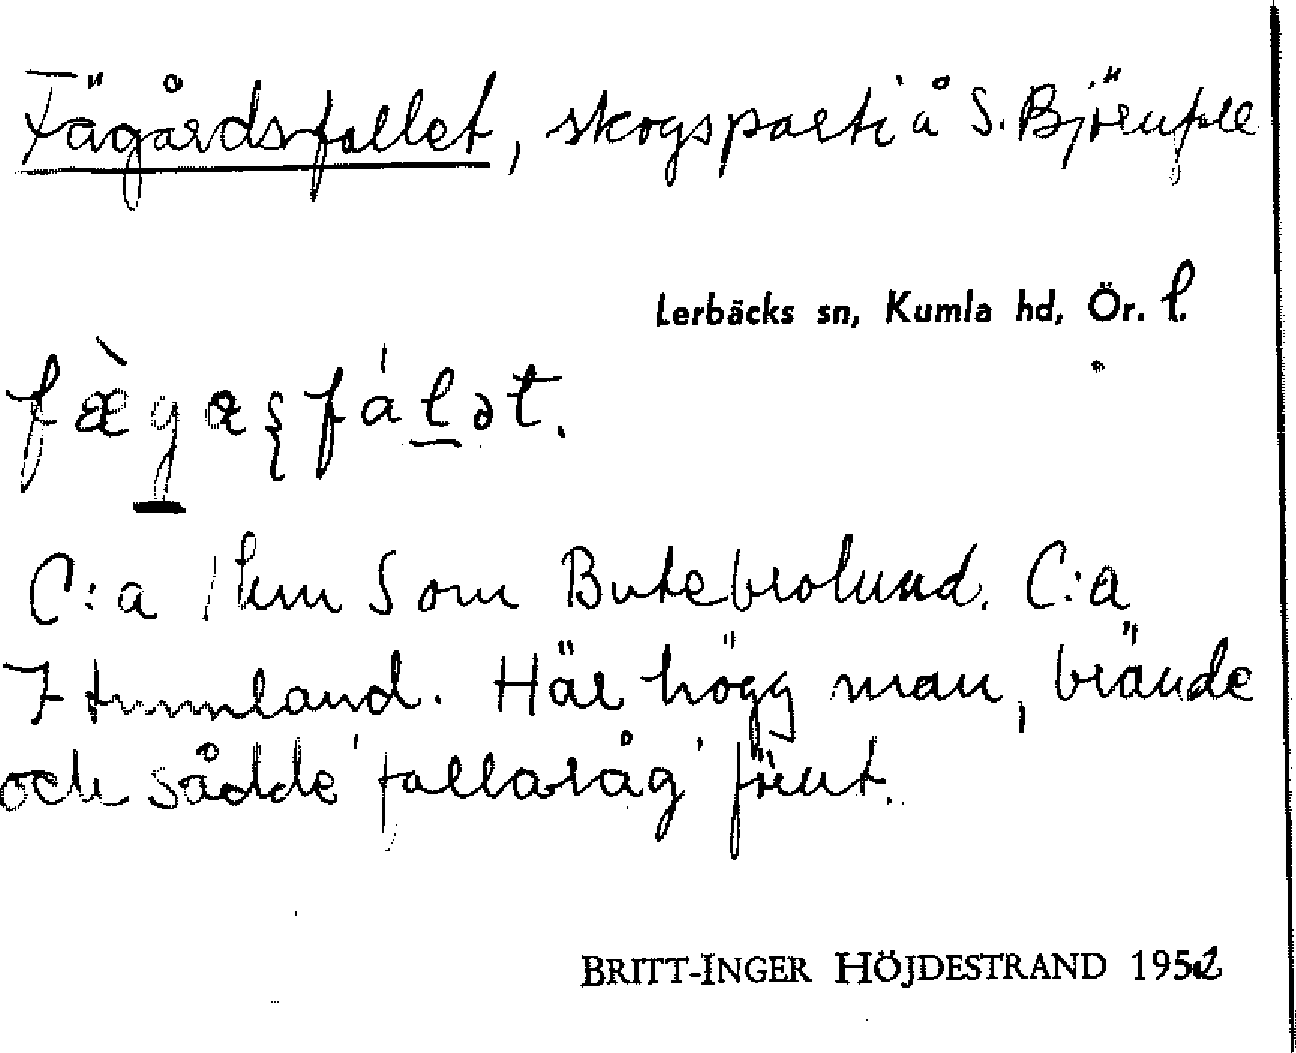 Fägårdsfallet, skogsparti å S. Björnfall
Lerbäcks sn, Kumla hd, Ör. l.
fæ̀gaʂfáLət.
C:a 1 km S om Butebrolund. C:a
7 tunnland. Här högg man, brände
och sådde 'fallaråg' förut.
BRITT-INGER HÖJDESTRAND 1952